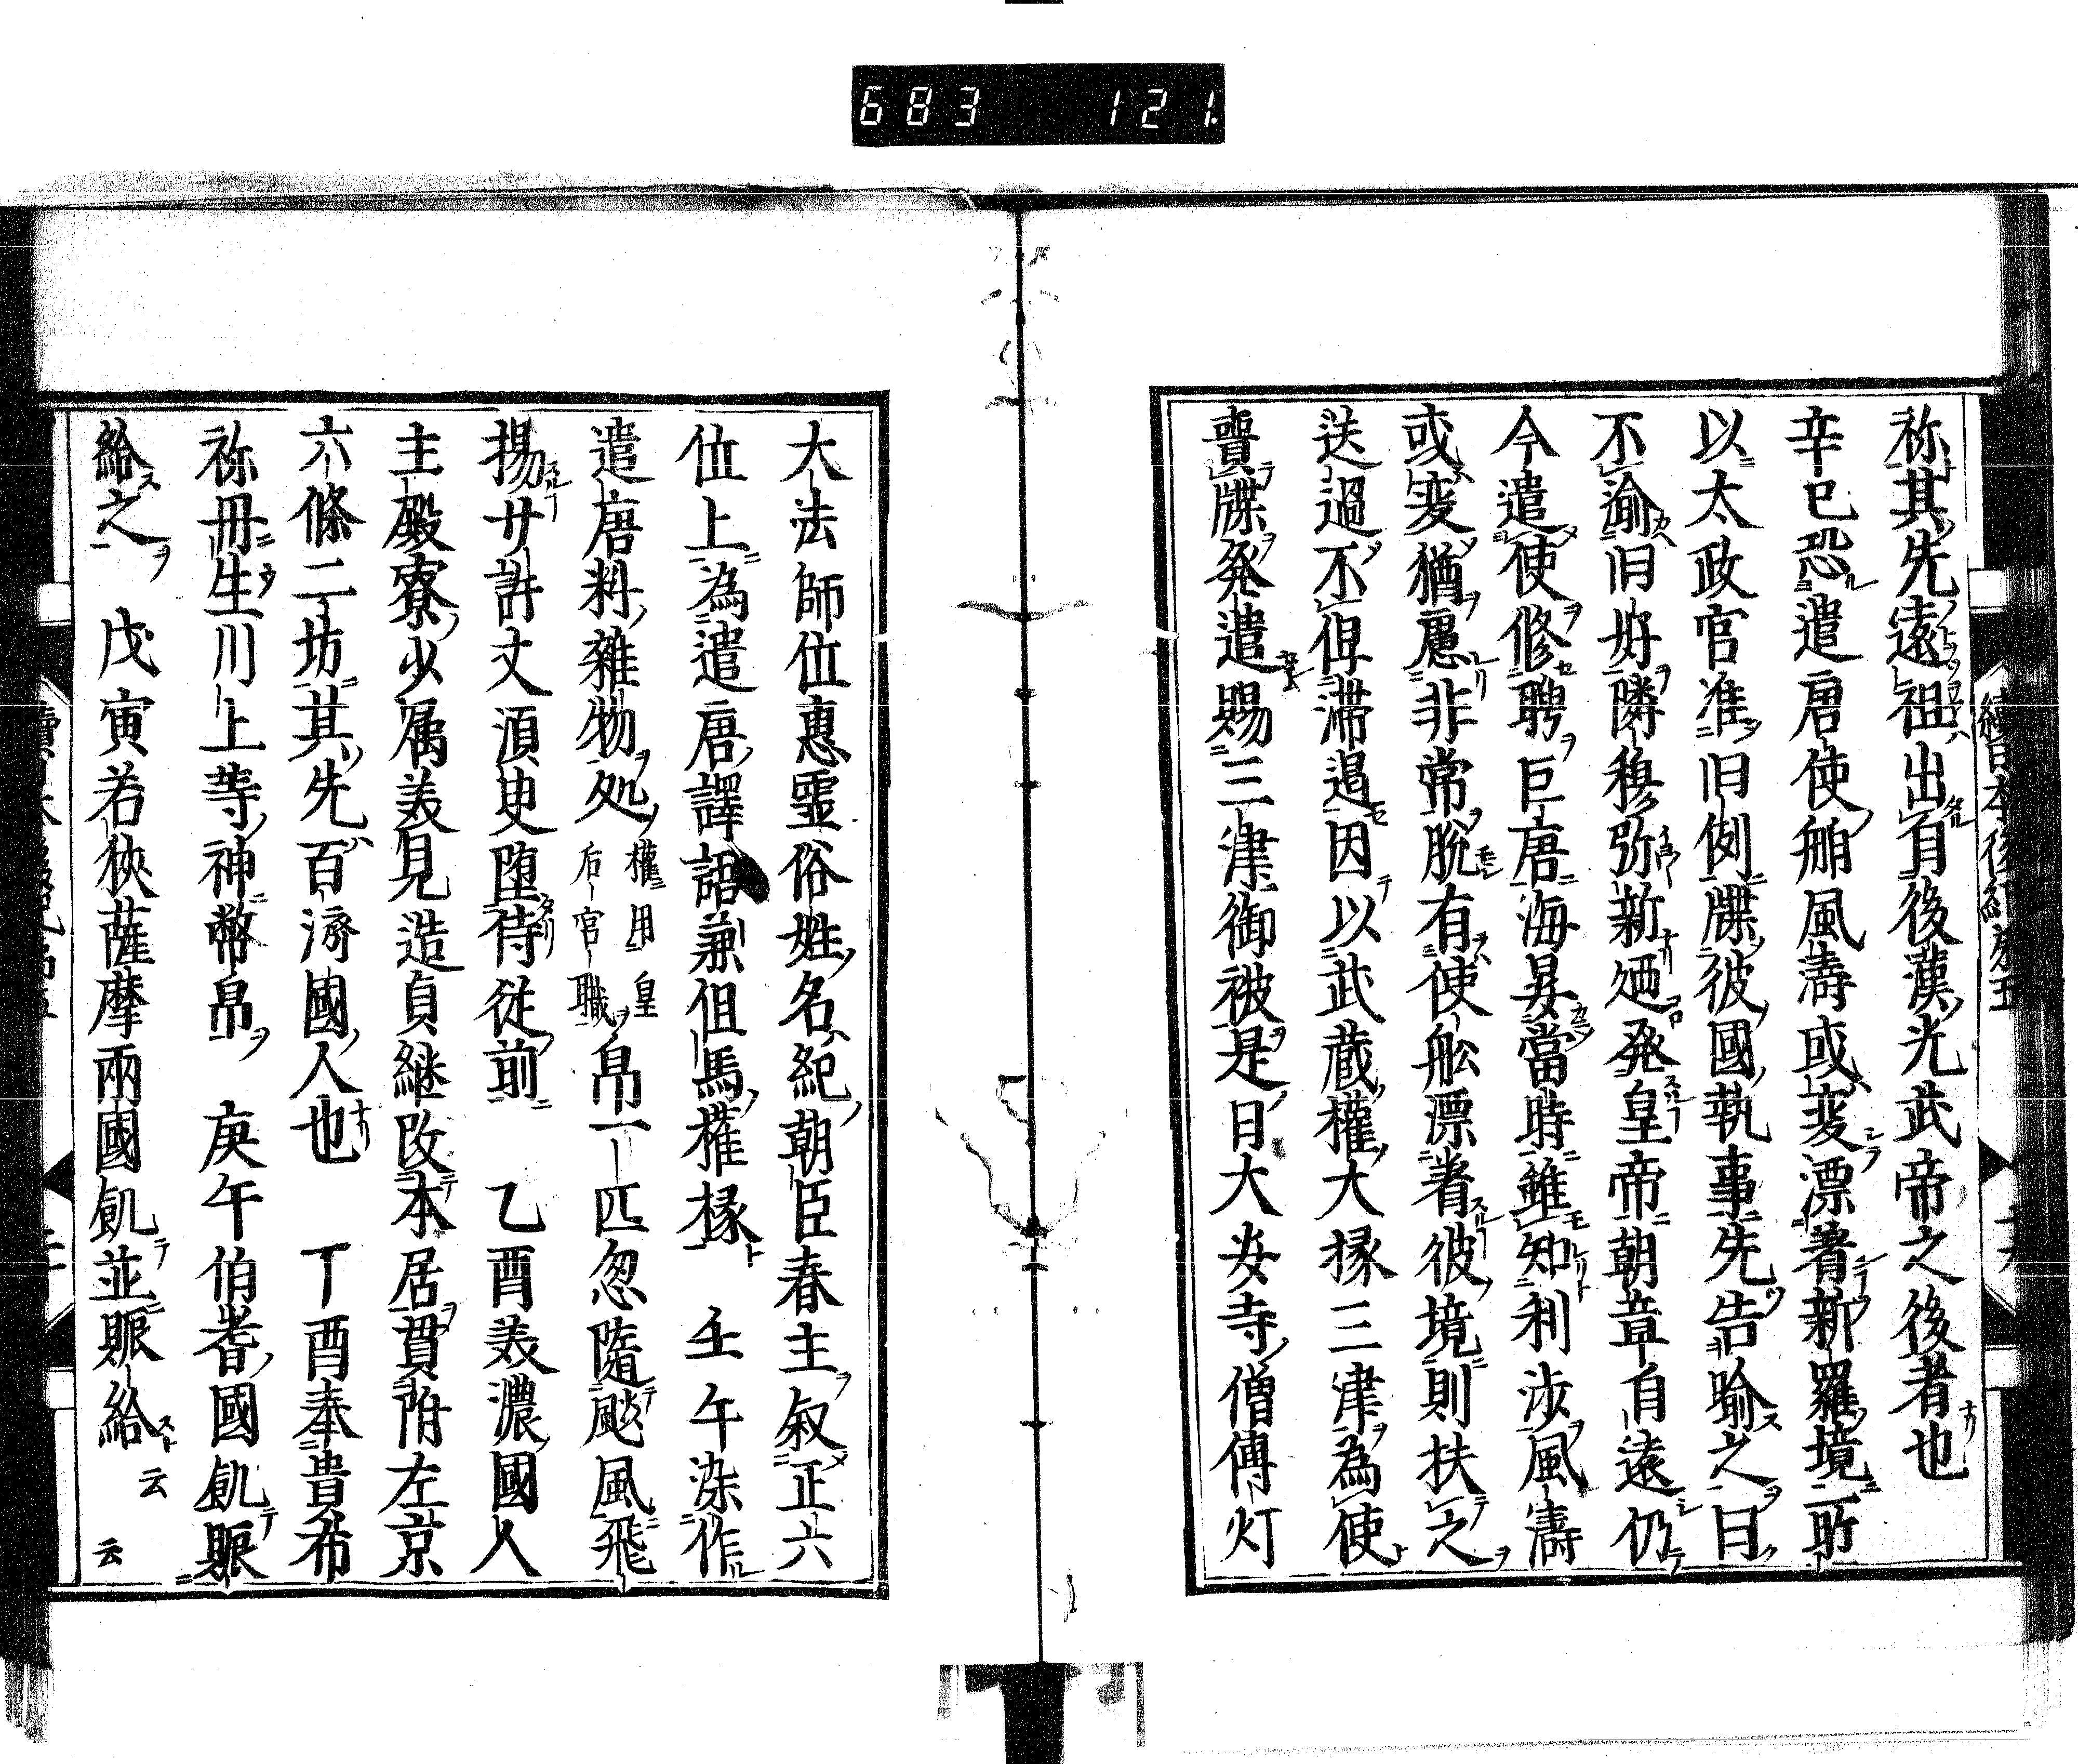 683 121
祢其先遠祖出有後漢光武帝之後者也
辛巳恐遣唐使舶風濤或変漂着新羅境所
以太政官准旧例牒彼國執事先告喩之曰
不渝旧好隣穆弥新廼発皇帝朝章自遠仍
今遣使修聘巨唐海晏當時雖知利渉風濤
或変猶慮非常脱有使舩漂着彼境則扶之
送過不俾滞遏因以武蔵權大掾三津為使
賷牒発遣賜三津御被是日大安寺僧傳灯
大法師位惠霊俗姓名紀朝臣春主叙正六
位上為遣唐譯語兼但馬權掾 壬午染作
遣唐料雜物処權用皇后官職帛一匹忽隨颷風飛
揚廿許丈須臾堕侍従前 乙酉美濃國人
主殿寮少属美見造貞継改本居貫附左京
六條二坊其先百済國人也 丁酉奉貴布
祢丹生川上等神幣帛 庚午伯耆國飢賑
給之 戊寅若狹薩摩兩國飢並賑給云云